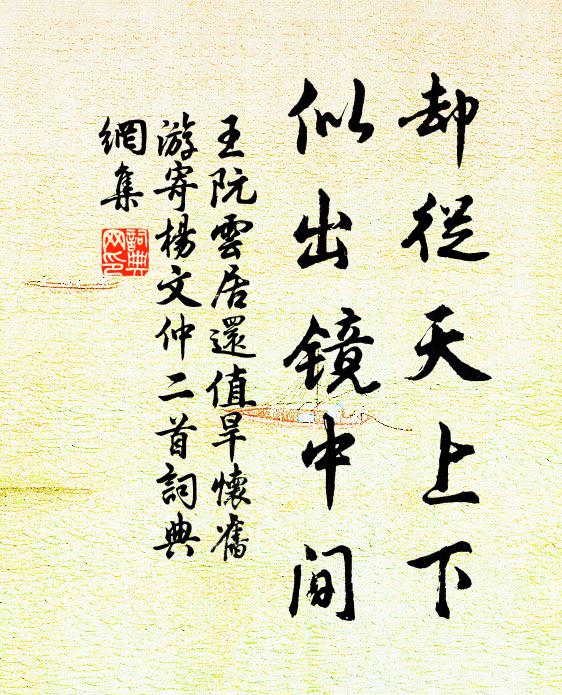 却從天上下
似出镜中间
王阮雲居還值旱懷舊
游寄楊文仲二首詞典
網集
詞典
网印